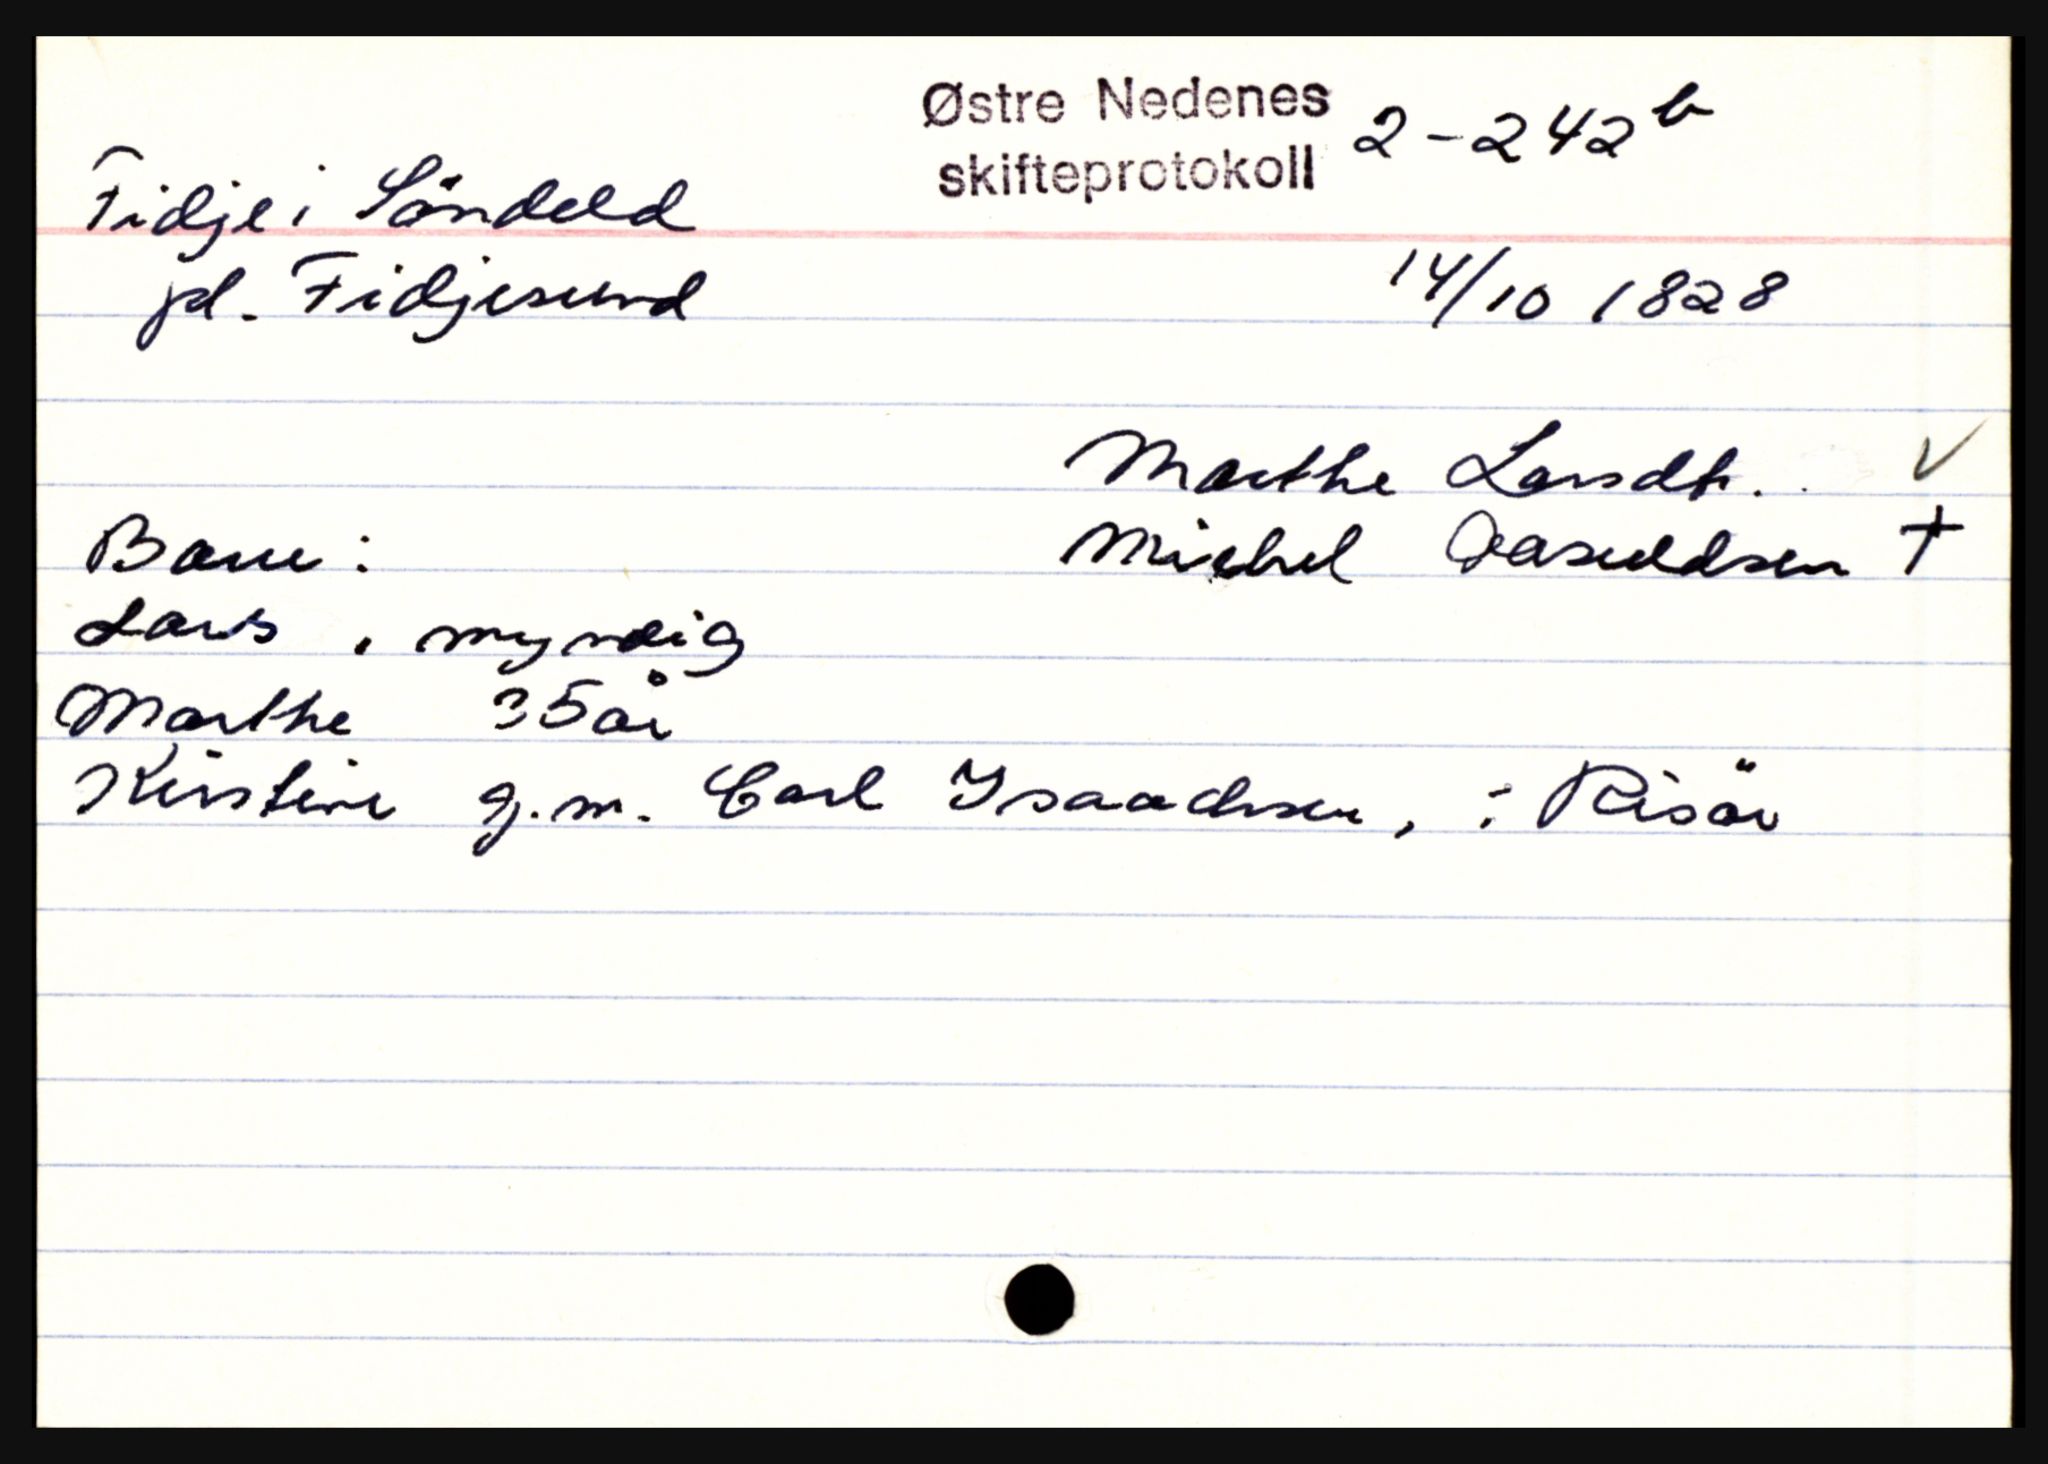 Østre Nedenes
skifteprotokoll 2-242 b
Fidje i Söndeld
pl. Fidjesund 14/10 1828
Marthe Larsdtr. ✓
Barn: Michel Oasuldsen †
Lars, myndig
Marthe 35 år
Kirstine g.m. Carl Isaachsen, i Risör